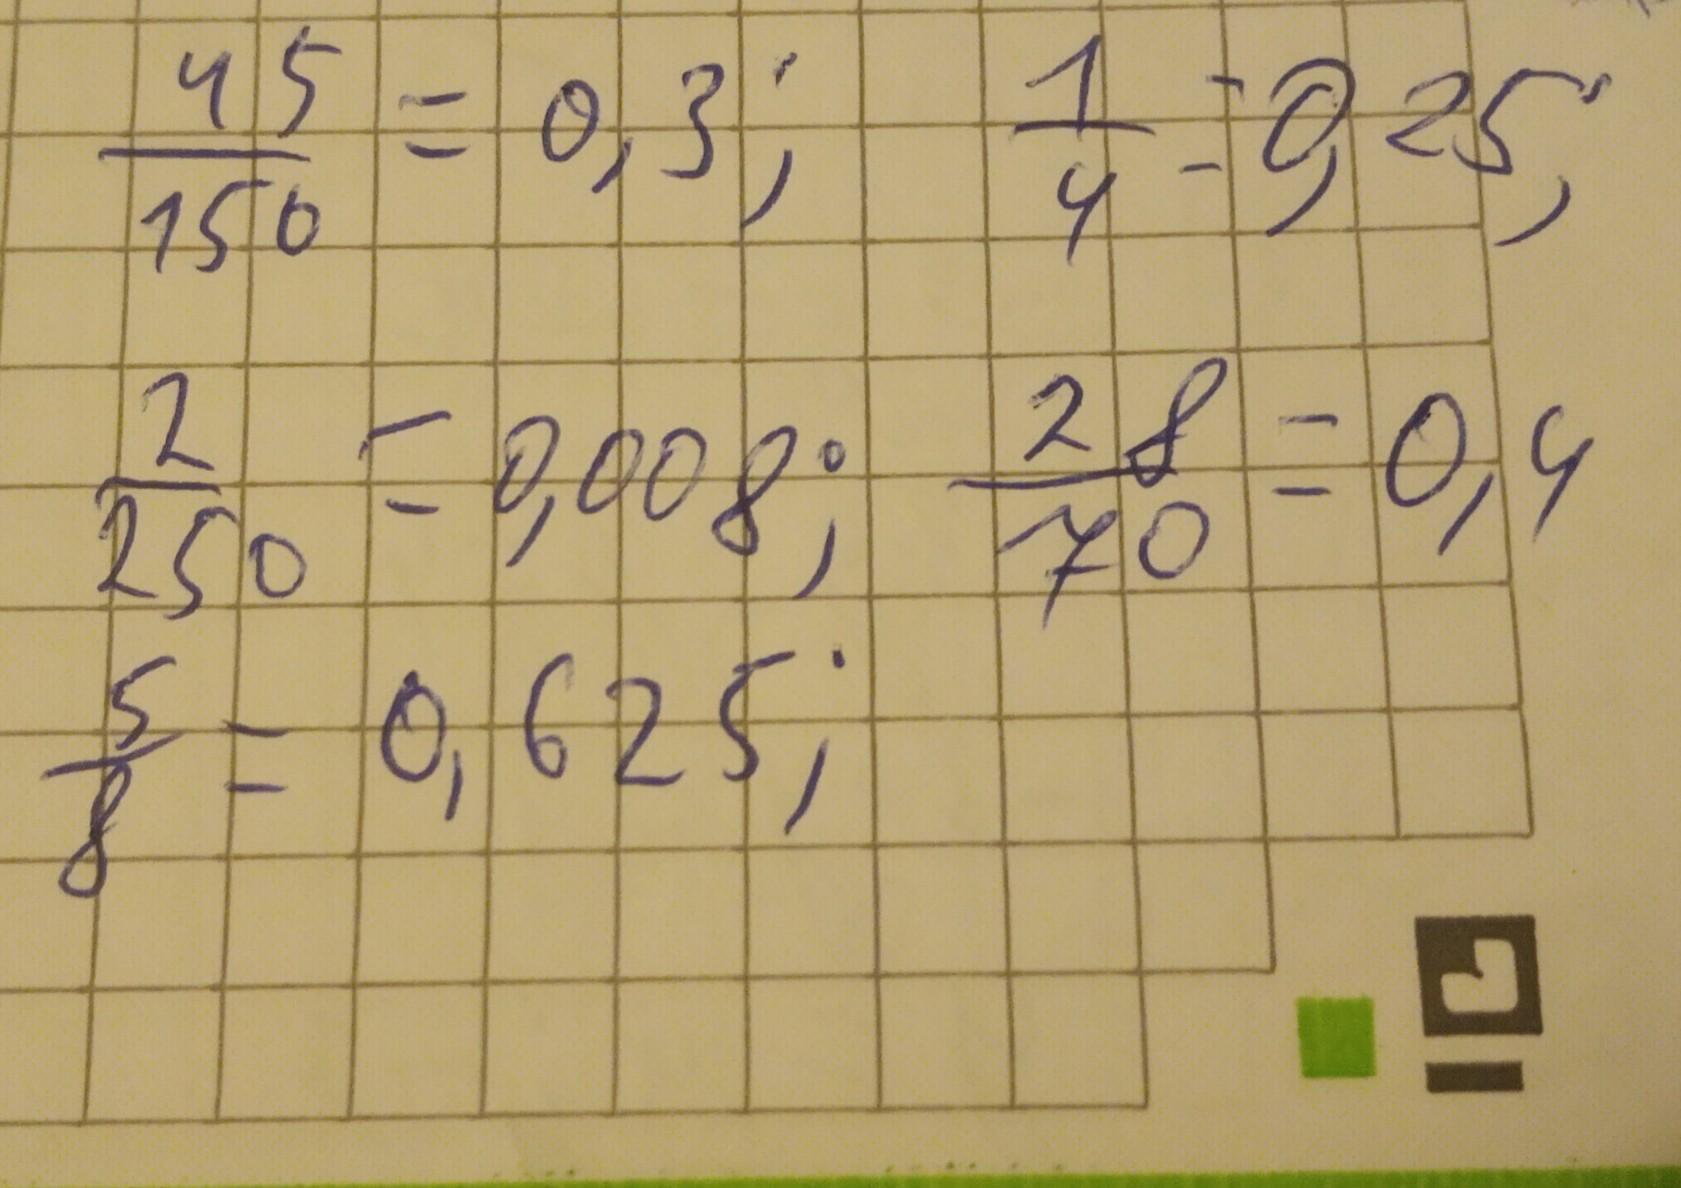 45/150 = 0,3; 1/4 = 0,25;
2/250 = 0,008; 28/70 = 0,4
5/8 = 0,625;